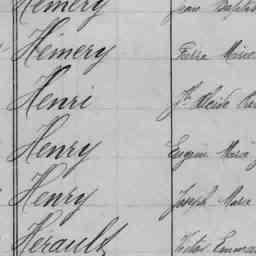 Hémery Jean Baptis
Hémery Pierre Marie
Henri Jh
Henry Eugène Marie J
Henry Joseph Marie
Hérault Victor Emman